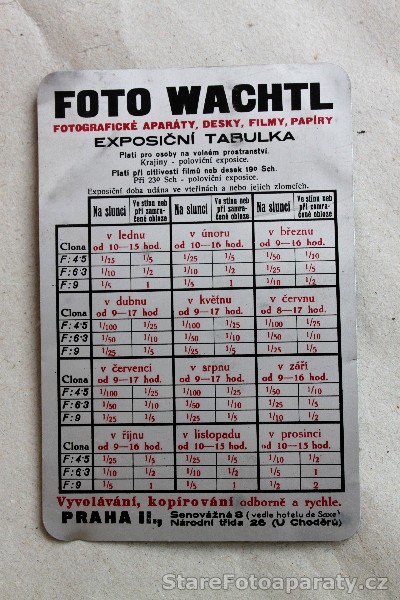 FOTO WACHTL
FOTOGRAFICKÉ APARÁTY, DESKY, FILMY, PAPÍRY
EXPOSIČNÍ TABULKA
Platí pro osoby na volném prostranství.
Krajiny - poloviční exposice.
Platí při citlivosti filmů neb desek 19º Sch.
Při 23º Sch - poloviční exposice.
Exposiční doba udána ve vteřinách a nebo jejich zlomcích.
Na slunci Ve stínu neb při zamračené obloze Na slunci Ve stínu neb při zamračené obloze Na slunci Ve stínu neb při zamračené obloze
Clona v lednu od 10—15 hod. v únoru od 10—16 hod. v březnu od 9—16 hod.
F: 4·5 1/25 1/5 1/25 1/5 1/50 1/10
F: 6·3 1/10 1/2 1/10 1/2 1/25 1/5
F: 9 1/5 1 1/5 1 1/10 1/2
Clona v dubnu od 9—17 hod v květnu od 9—17 hod. v červnu od 8—17 hod.
F: 4·5 1/100 1/25 1/100 1/25 1/100 1/25
F: 6·3 1/50 1/10 1/50 1/10 1/50 1/10
F: 9 1/25 1/5 1/25 1/5 1/25 1/5
Clona v červenci od 9—17 hod. v srpnu od 9—17 hod. v září od 9—16 hod.
F: 4·5 1/100 1/25 1/100 1/25 1/50 1/10
F: 6·3 1/50 1/10 1/50 1/10 1/25 1/5
F: 9 1/25 1/5 1/25 1/5 1/10 1/2
Clona v říjnu od 9—16 hod. v listopadu od 10—15 hod. v prosinci od 10—15 hod.
F: 4·5 1/25 1/5 1/25 1/5 1/10 1/2
F: 6·3 1/10 1/2 1/10 1/2 1/5 1
F: 9 1/5 1 1/5 1 1/2 2
Vyvolávání, kopírování odborně a rychle.
PRAHA II., Senovážná 8 (vedle hotelu de Saxe)
Národní třída 26 (U Choděrů)
StareFotoaparaty.cz